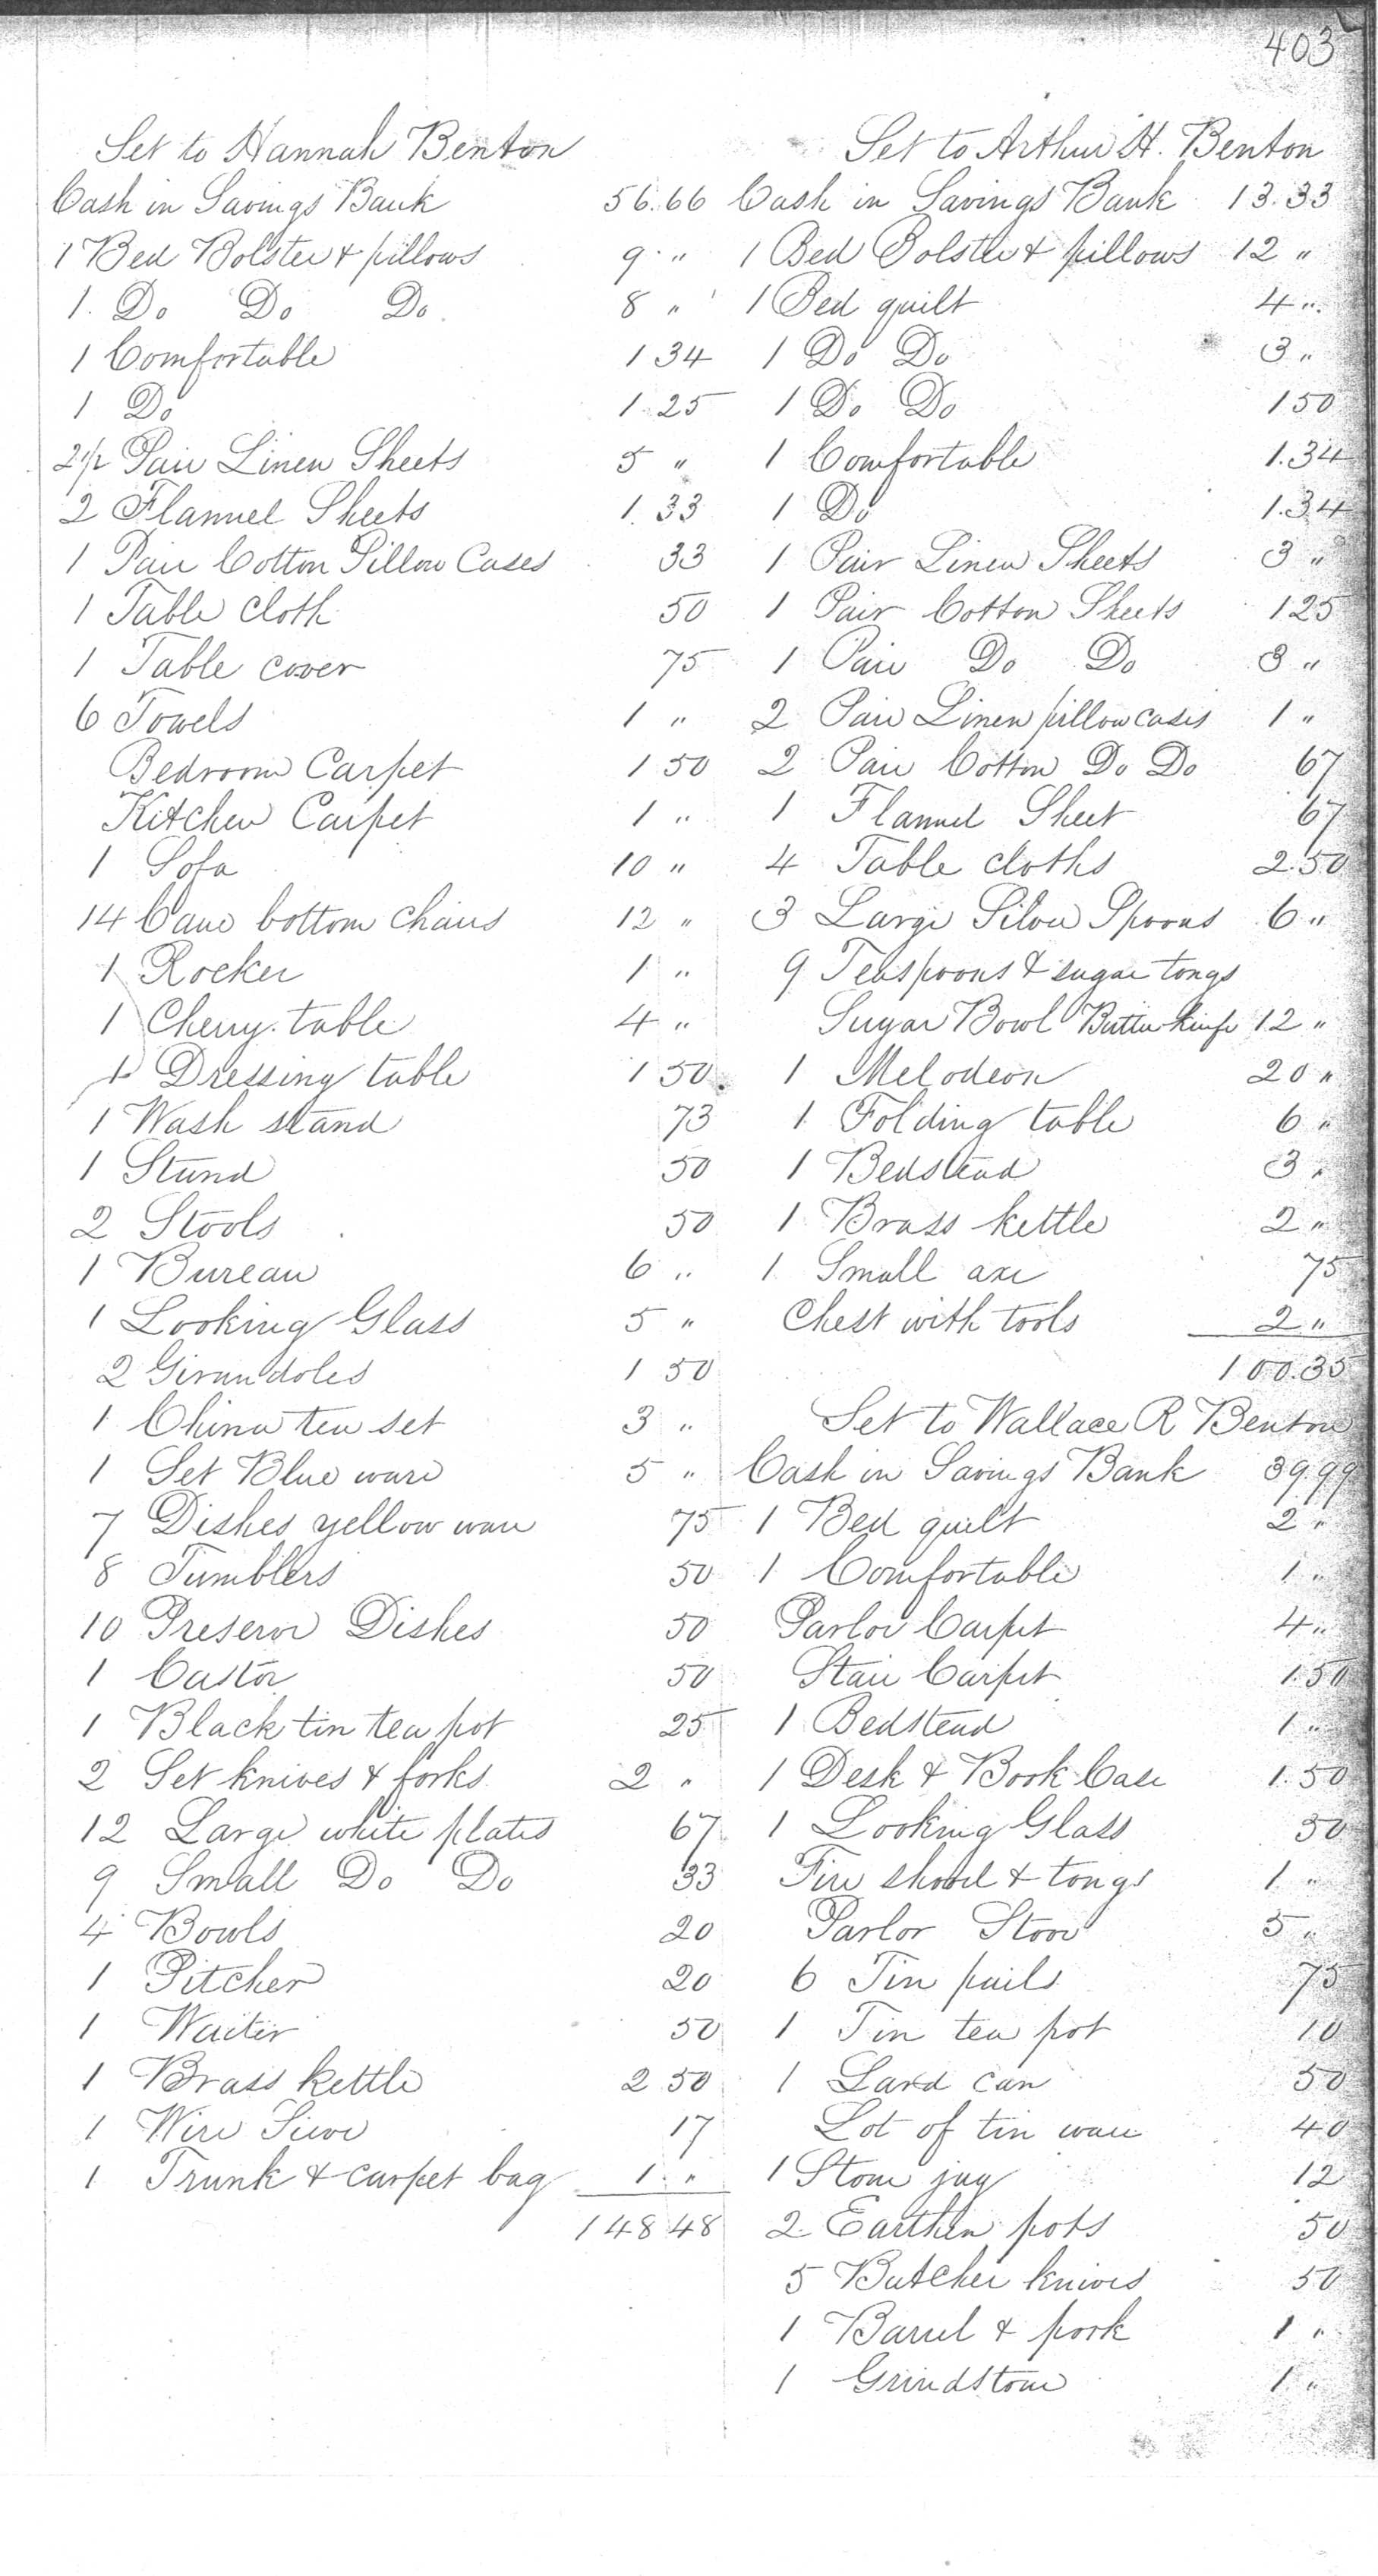 403
Set to Hannah Benton
Cash in Savings Bank 56.66
1 Bed Bolster & pillows 9 "
1. Do Do Do 8 "
1 Comfortable 1 34
1 Do 1.25
2 1/2 Pair Linen Sheets 5 "
2 Flannel Sheets 1.33
1 Pair Cotton Pillow Cases 33
1 Table cloth 50
1 Table cover 75
6 Towels 1 "
Bedroom Carpet 1 50
Kitchen Carpet 1 "
1 Sofa 10 "
14 Cane bottom chairs 12 "
1 Rocker 1 "
1 Cherry table 4 "
1 Dressing table 1 50
1 Wash stand 73
1 Stand 50
2 Stools 50
1 Bureau 6 "
1 Looking Glass 5 "
2 Girandoles 1 50
1 China tea set 3 "
1 Set Blue ware 5 "
7 Dishes yellow ware 75
8 Tumblers 50
10 Preserve Dishes 50
1 Castor 50
1 Black tin tea pot 25
2 Set knives & forks 2 "
12 Large white plates 67
9 Small Do Do 33
4 Bowls 20
1 Pitcher 20
1 Waiter 50
1 Brass kettle 2 50
1 Wire Sieve 17
1 Trunk & carpet bag 1 "
148 48
Set to Arthur H. Benton
Cash in Savings Bank 13.33
1 Bed Bolster & pillows 12 "
1 Bed quilt 4 "
1 Do Do 3 "
1 Do Do 1 50
1 Comfortable 1.34
1 Do 1.34
1 Pair Linen Sheets 3 "
1 Pair Cotton Sheets 1 25
1 Pair Do Do 3 "
2 Pair Linen pillow cases 1 "
2 Pair Cotton Do Do 67
1 Flannel Sheet 67
4 Table cloths 2.50
3 Large Silver Spoons 6 "
9 Teaspoons & sugar tongs
Sugar Bowl Butter knife 12 "
1 Melodeon 20 "
1 Folding table 6 "
1 Bedstead 3 "
1 Brass kettle 2 "
1 Small axe 75
Chest with tools 2 "
100.35
Set to Wallace R Benton
Cash in Savings Bank 39.99
1 Bed quilt 2 "
1 Comfortable 1 "
Parlor Carpet 4 "
Stair Carpet 1.50
1 Bedstead 1 "
1 Desk & Book Case 1.50
1 Looking Glass 50
Fire shovel & tongs 1 "
Parlor Stove 5 "
6 Tin pails 75
1 Tin tea pot 10
1 Lard can 50
Lot of tin ware 40
1 Stone jug 12
2 Earthen pots 50
5 Butcher knives 50
1 Barrel & pork 1 "
1 Grindstone 1 "